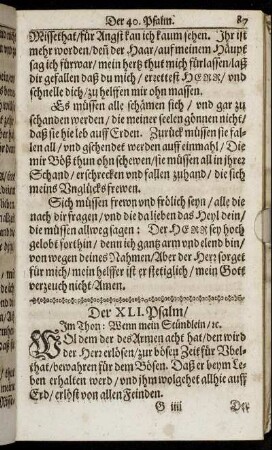 Der 40. Psalm. 87
Missethat/für Angst kan ich kaum sehen. Ihr ist
mehr worden/deñ der Haar/auf meinem Häupt
sag ich fürwar/mein hertz thut mich fürlassen/laß
dir gefallen daß du mich/ erzettest HERR/ und
schnelle dich/ zu helffen mir ohn massen.
Es müssen alle schämen sich / und gar zu
schanden werden/ die meiner seelen gönnen nicht/
daß sie hie leb auff Erden. Zurück müssen sie fal-
len all / und gschendet werden auff einmahl/ Die
mir Böß thun ohn schewen/sie müssen all in jhrer
Schand/ erschrecken und fallen zuhand/ die sich
meins Vnglücks frewen.
Sich müssen frewn und frölich seyn / alle die
nach dir fragen/ und die da lieben das Heyl dein/
die müssen allweg sagen: Der HERR sey hoch
gelobt forthin/ denn ich gantz arm und elend bin/
von wegen deines Nahmen/ Aber der Herr sorget
für mich/ mein helffer ist er stetiglich/ mein Gott
verzeuch nicht/ Amen.
Der XLI. Psalm/
Im Thon: Wenn mein Stündlein/ ꝛc.
WOl dem der des Armen acht hat/den wird
der Herr erlösen/zur bösen Zeit für Vbel-
that/bewahren für dem Bösen. Daß er beym Le-
ben erhalten werd / und jhm wolgehet allhie auff
Erd/ erlöst von allen Feinden.
G iiij Der